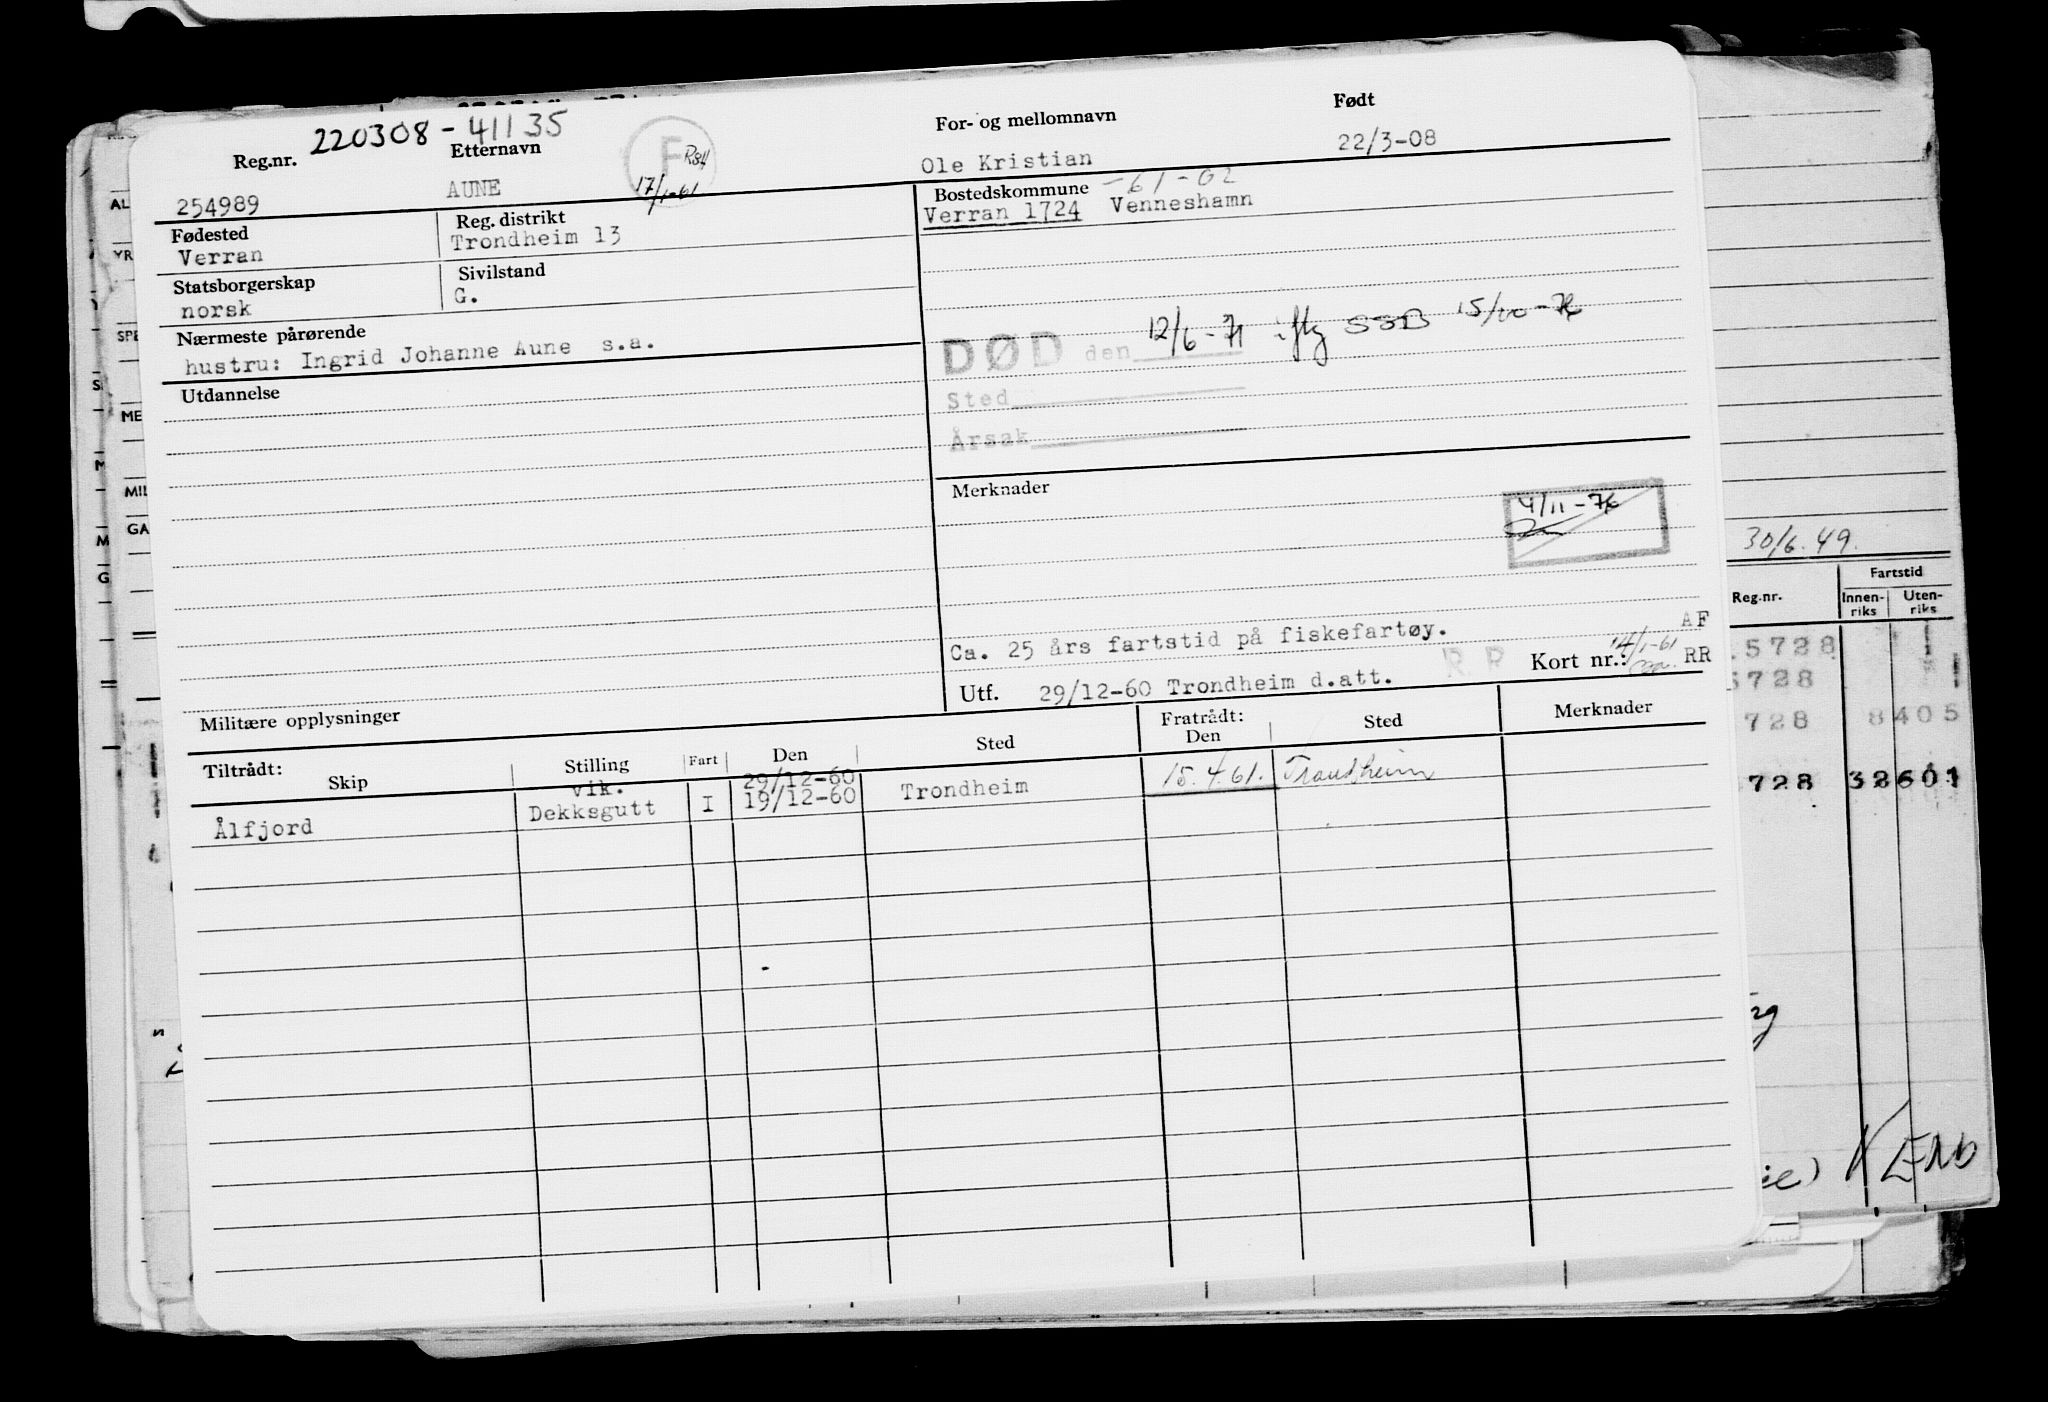 220308-41135
Reg.nr. Etternavn For- og mellomnavn Født
254989 AUNE Ole Kristian 22/3-08
F
17/1-61
Fødested Reg. distrikt Bostedskommune -61-02
Verran Trondheim 13 Verran 1724 Venneshamn
Statsborgerskap Sivilstand
norsk G.
Nærmeste pårørende
hustru: Ingrid Johanne Aune s.a.
DØD den 12/6-71 iflg SSB
Sted
Årsak
Utdannelse
Merknader
4/11-76
Ca. 25 års fartstid på fiskefartøy. AF
RR Kort nr.: 14/1-61 RR
Utf. 29/12-60 Trondheim d.att.
Militære opplysninger
Tiltrådt: Fratrådt:
Skip Stilling Fart Den Sted Den Sted Merknader
vik. 29/12-60
Ålfjord Dekksgutt I 19/12-60 Trondheim 15.4.61. Trondheim
AL
YR
SPE
ME
MIL
GA
30/6.49.
Fartstid
Reg.nr. Innen-riks Uten-riks
5728
5728
728 8405
728 32601